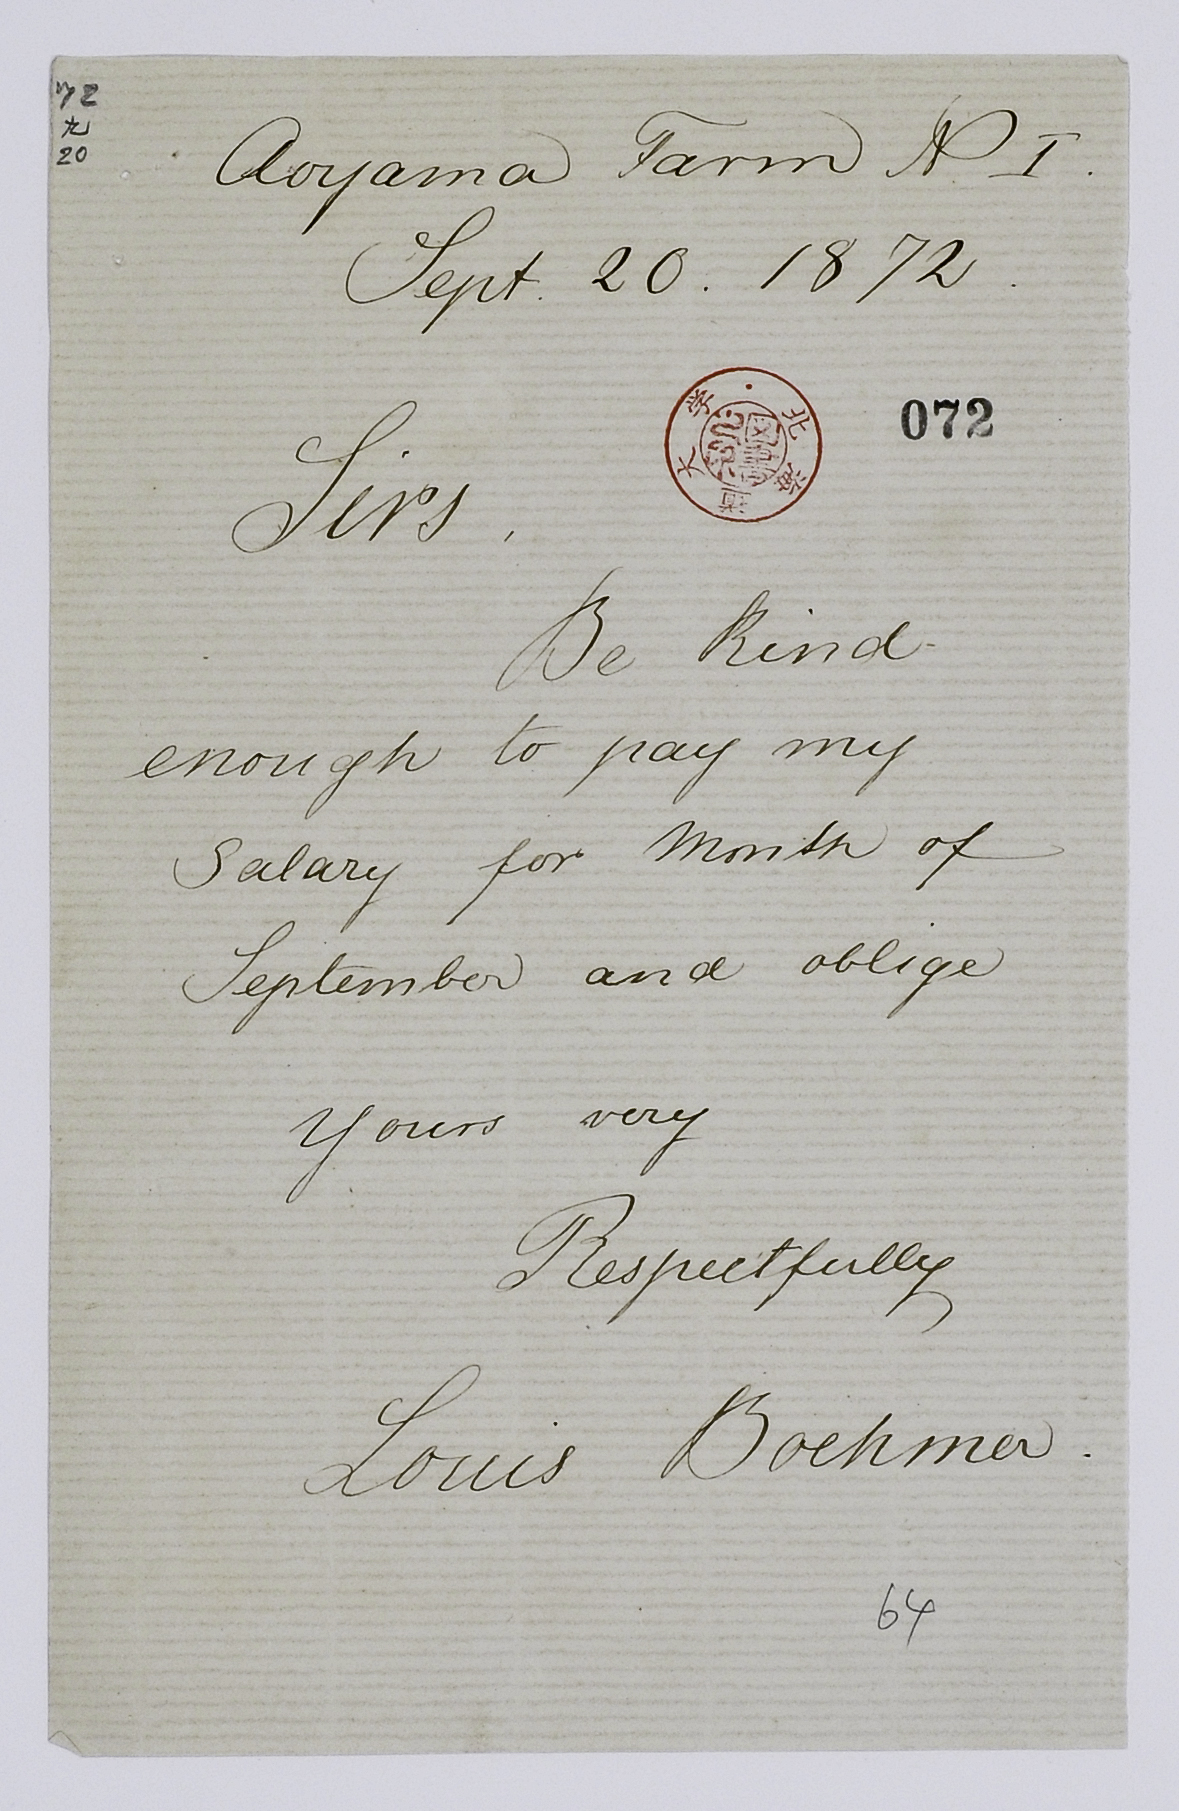 72
九
20
Aoyama Farm N I.
Sept. 20. 1872.
北海道大学
図書
072
Sirs,
Be kind
enough to pay my
Salary for Month of
September and oblige
Yours very
Respectfully
Louis Boehmer.
64